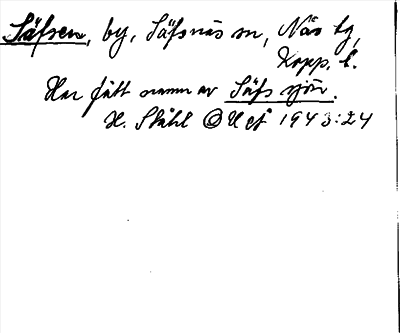 Säfsen, by, Säfsnäs sn, Näs tg,
Kopp. l.
Har fått namn av Säfssjön.
H. Ståhl 1943:24